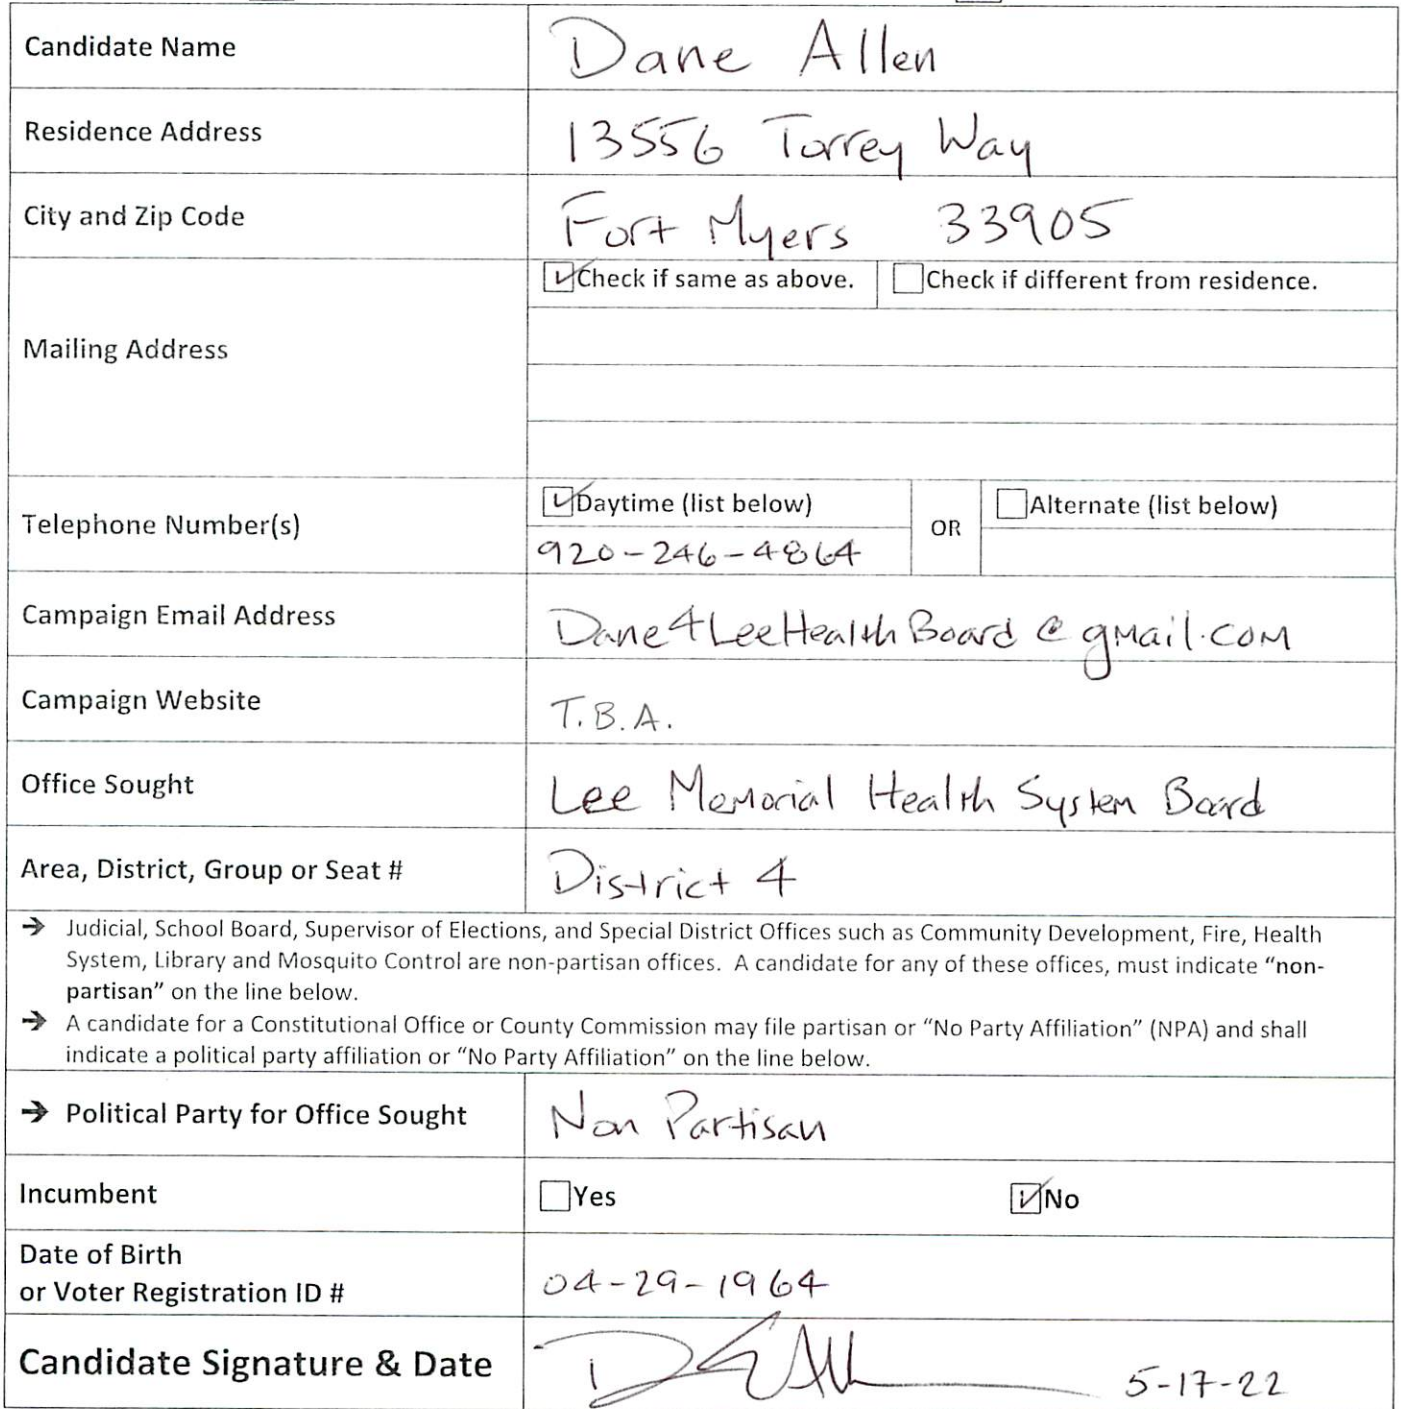 Candidate Name Dane Allen
Residence Address 13556 Torrey Way
City and Zip Code Fort Myers 33905
Check if same as above. Check if different from residence.
Mailing Address
Daytime (list below) OR Alternate (list below)
Telephone Number(s)
920-246-4864
Campaign Email Address Dane4LeeHealthBoard@gmail.com
Campaign Website T.B.A.
Office Sought Lee Memorial Health System Board
Area, District, Group or Seat # District 4
→ Judicial, School Board, Supervisor of Elections, and Special District Offices such as Community Development, Fire, Health
System, Library and Mosquito Control are non-partisan offices. A candidate for any of these offices, must indicate “non-
partisan” on the line below.
→ A candidate for a Constitutional Office or County Commission may file partisan or “No Party Affiliation” (NPA) and shall
indicate a political party affiliation or “No Party Affiliation” on the line below.
→ Political Party for Office Sought Non Partisan
Incumbent Yes No
Date of Birth
or Voter Registration ID # 04-29-1964
Candidate Signature & Date 5-17-22